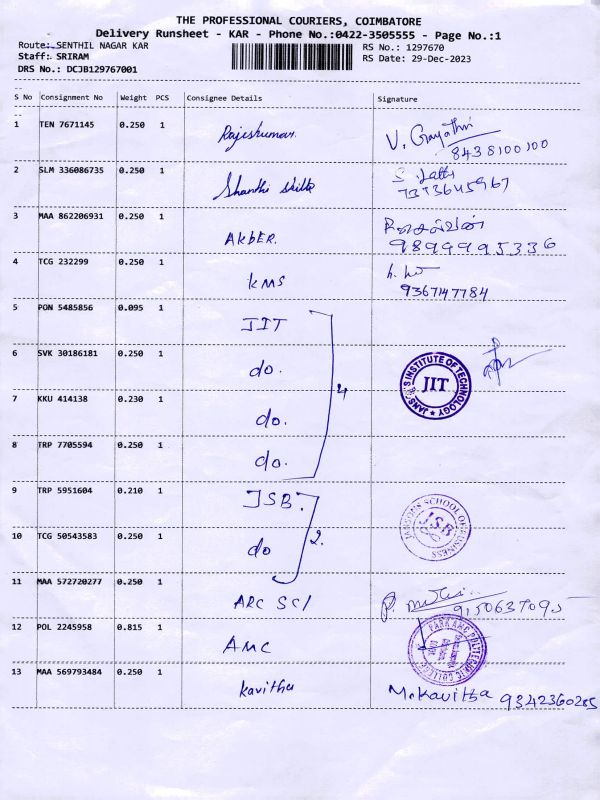 THE PROFESSIONAL COURIERS, COIMBATORE
Delivery Runsheet - KAR - Phone No.:0422-3505555 - Page No.:1
Route: SENTHIL NAGAR KAR
RS No.: 1297670
Staff: SRIRAM
RS Date: 29-Dec-2023
DRS No.: DCJB129767001
S No Consignment No Weight PCS Consignee Details Signature
1 TEN 7671145 0.250 1 Rajeskumar. V. Gayathri
8438100100
2 SLM 336086735 0.250 1 Shanthi
3 MAA 862206931 0.250 1 AKBER.
9899995336
4 TCG 232299 0.250 1 KMS
9367147784
5 PON 5485856 0.095 1 JIT
6 SVK 30186181 0.250 1 do.
JANSONS INSTITUTE OF TECHNOLOGY
JIT
7 KKU 414138 0.230 1 do.
4
8 TRP 7705594 0.250 1 do.
9 TRP 5951604 0.210 1 JSB.
JANSONS SCHOOL OF BUSINESS
J.S.B
10 TCG 50543583 0.250 1 do 2.
11 MAA 572720277 0.250 1 ARC SCI P.
9150637095
12 POL 2245958 0.815 1 AMC
PARK AMC POLYTECHNIC COLLEGE
13 MAA 569793484 0.250 1 Kavitha M.Kavitha 9342360285